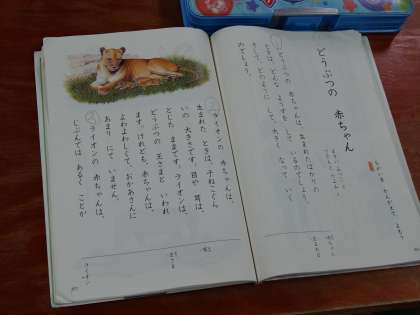 どうぶつの 赤ちゃん
どうぶつの 赤ちゃんは、生まれたばかりの
ときは、どんな ようすを して いるのでしょう。
そして、どのように して、大きく なって いく
のでしょう。
ライオンの 赤ちゃんは、
生まれた ときは、子ねこぐら
いの 大きさです。目や 耳は、
とじた ままです。ライオンは、
どうぶつの 王さまと いわれ
ます。けれども、赤ちゃんは、
よわよわしくて、おかあさんに
あまり にて いません。
ライオンの 赤ちゃんは、
じぶんでは あるく ことが
ライオン